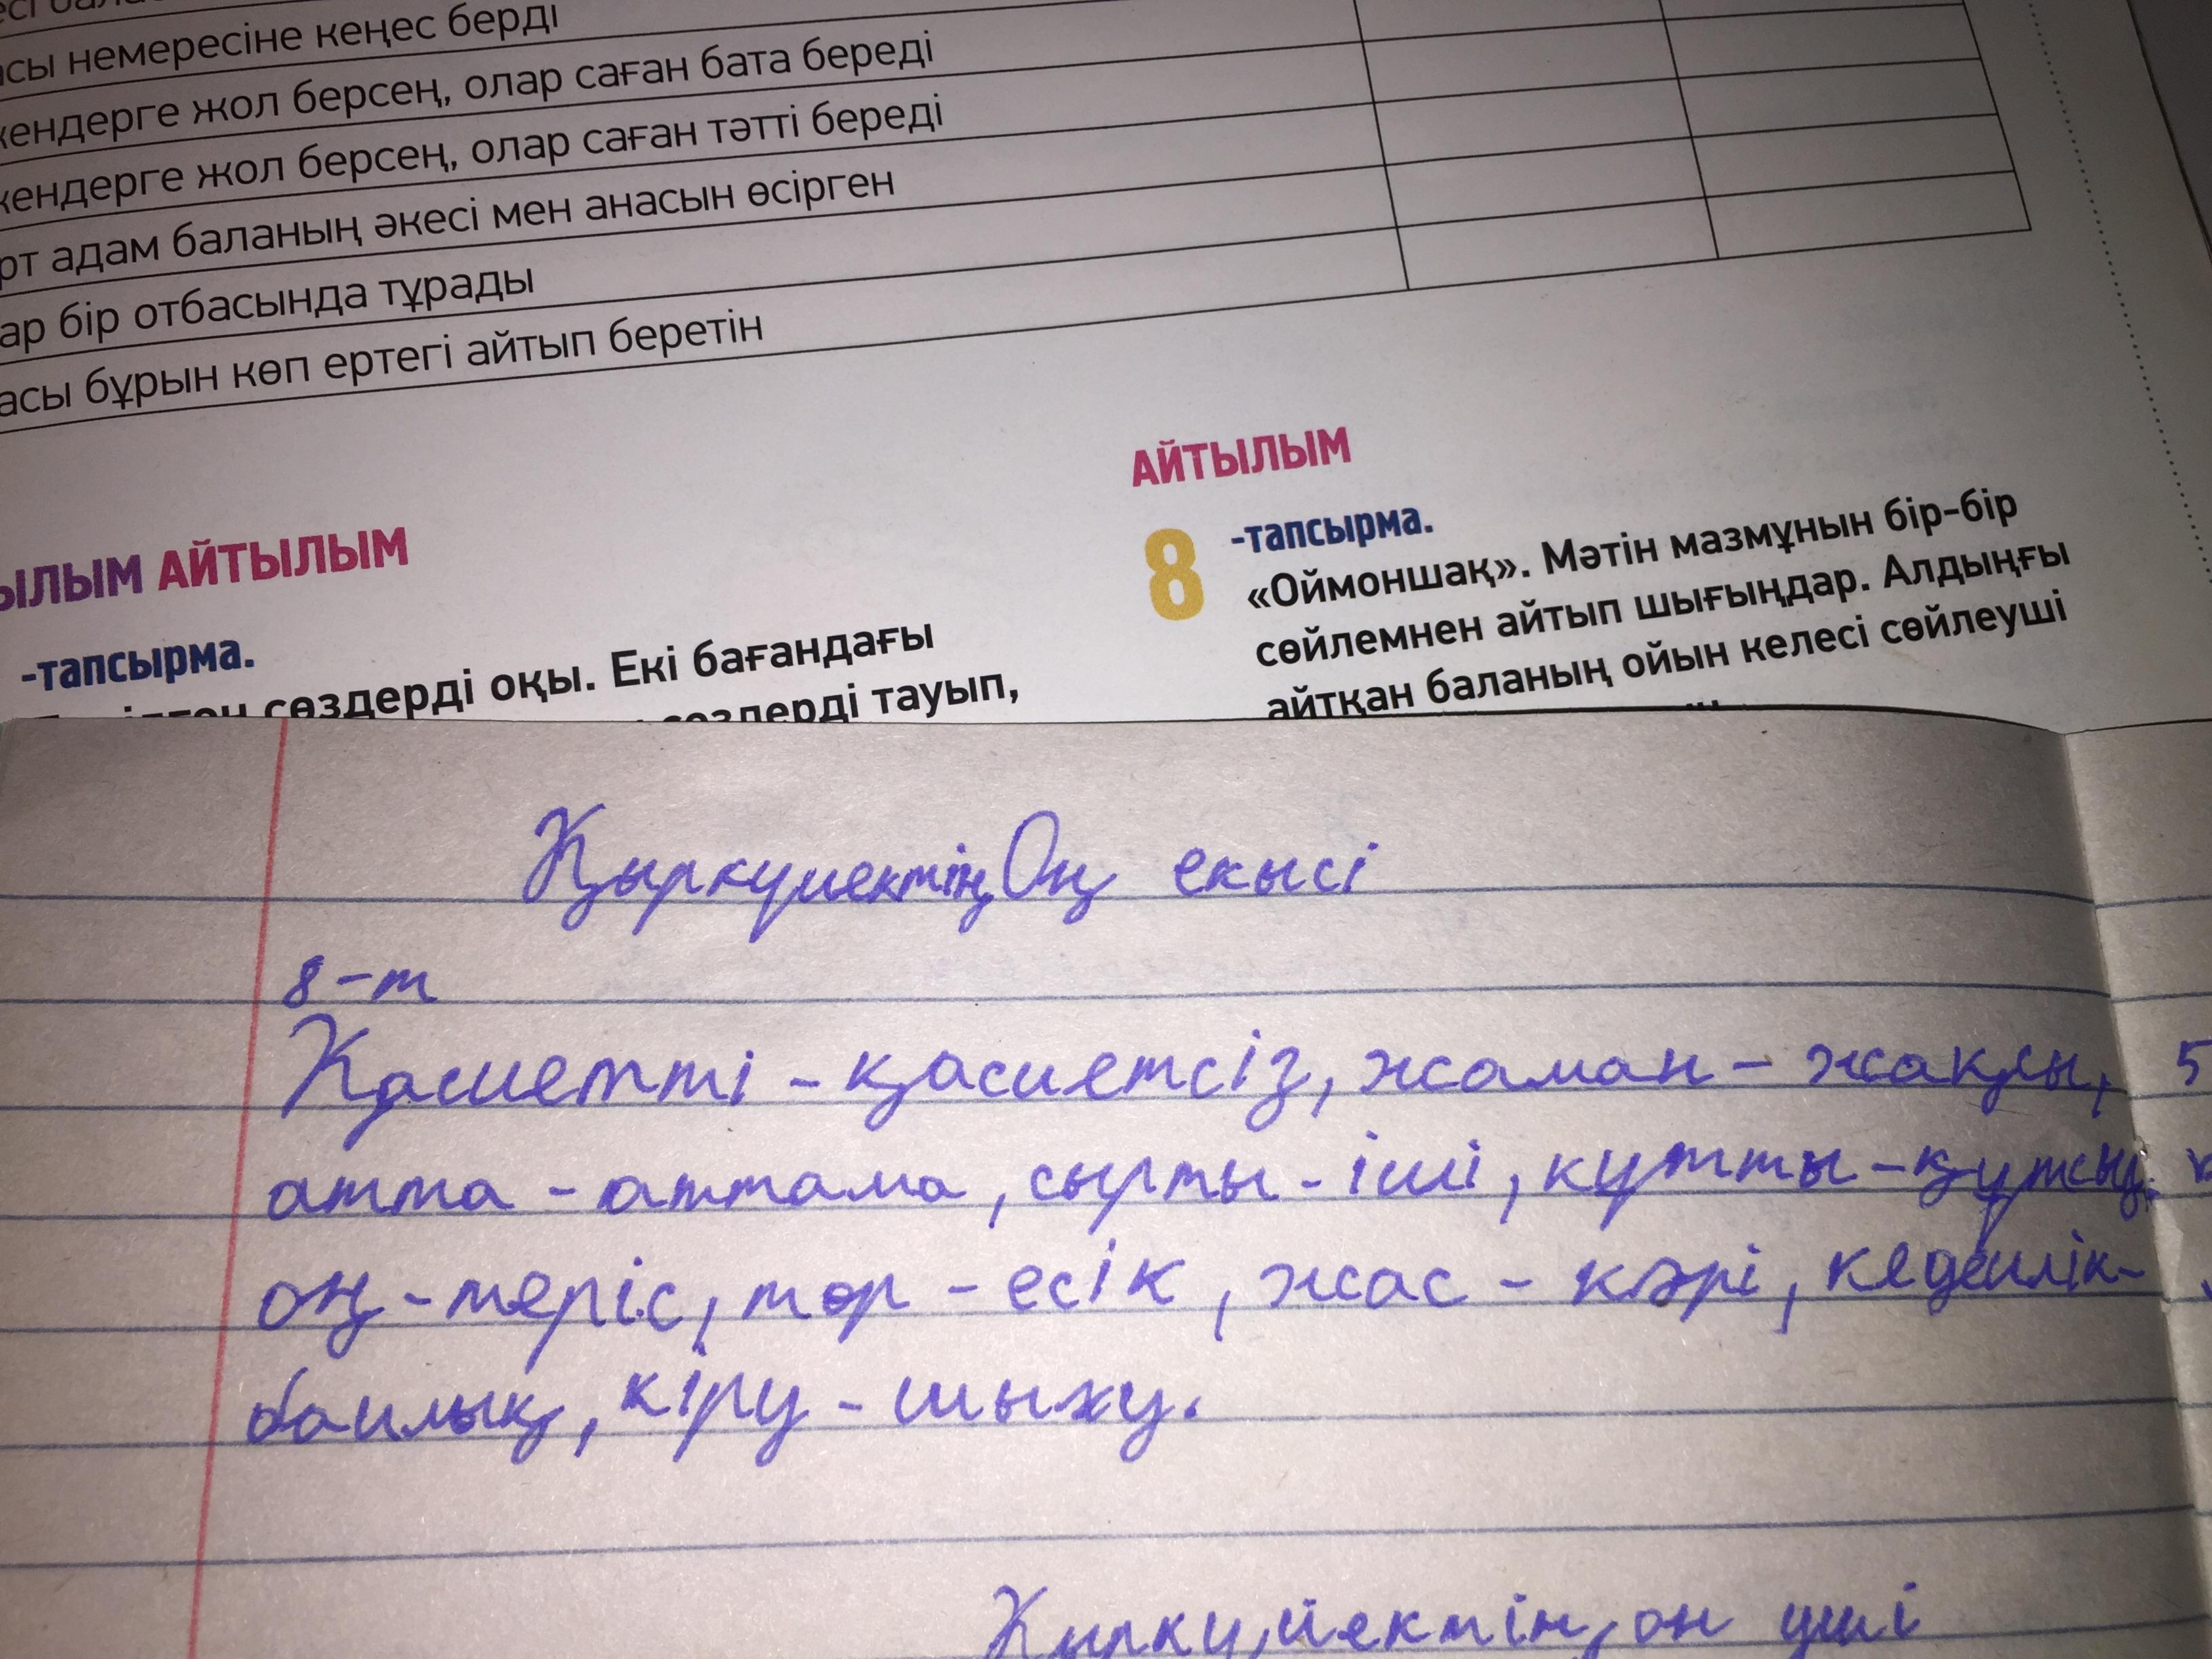 асы немересіне кеңес берді
кендерге жол берсең, олар саған бата береді
кендерге жол берсең, олар саған тәтті береді
рт адам баланың әкесі мен анасын өсірген
ар бір отбасында тұрады
асы бұрын көп ертегі айтып беретін
ЫЛЫМ АЙТЫЛЫМ
-тапсырма.
сөздерді оқы. Екі бағандағы
сөздерді тауып,
АЙТЫЛЫМ
8 -тапсырма.
«Оймоншақ». Мәтін мазмұнын бір-бір
сөйлемнен айтып шығыңдар. Алдыңғы
айтқан баланың ойын келесі сөйлеуші
Қыркүиектің Оң екысі
8-т
Қасиетті - қасиетсіз, жаман - жақсы,
атта - аттама, сырты - іші, құтты - құтсыз,
оң - теріс, төр - есік, жас - кәрі, кедеилік-
баилық, кіру - шығу.
Қыркүйектің он үші